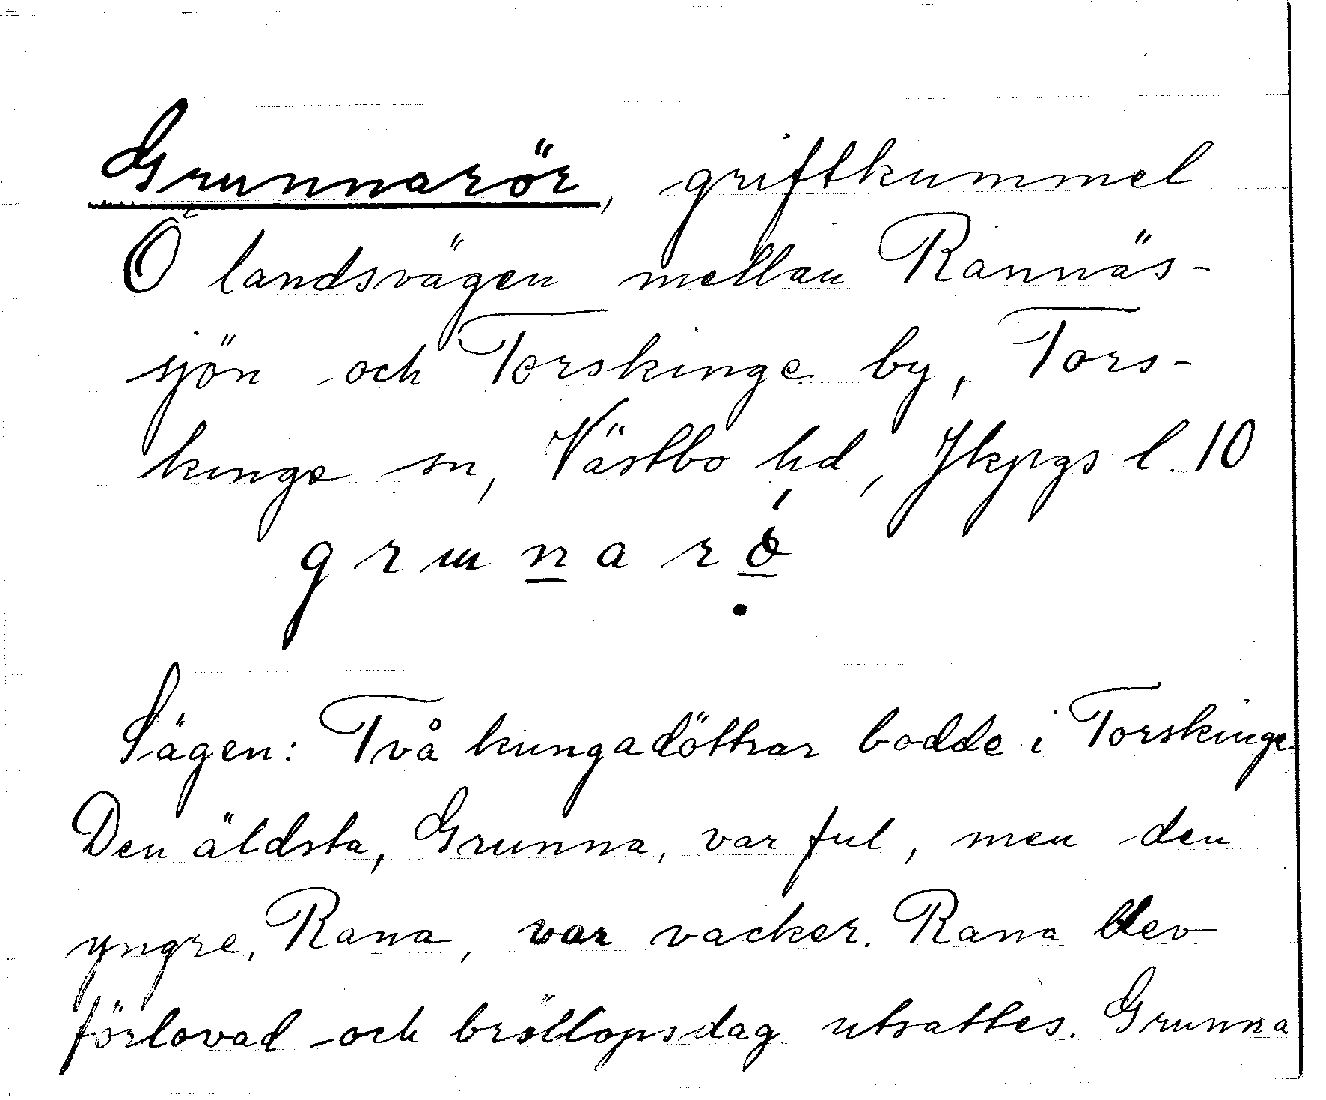 Grunnarör, griftkummel
Ö landsvägen mellan Rannäs-
sjön och Torskinge by, Tors-
kinge sn, Västbo hd, Jkpgs l. 10
Sägen: Två kungadöttrar bodde i Torskinge.
Den äldsta, Grunna, var ful, men den
yngre, Rana, var vacker. Rana blev
förlovad och bröllopsdag utsattes. Grunna